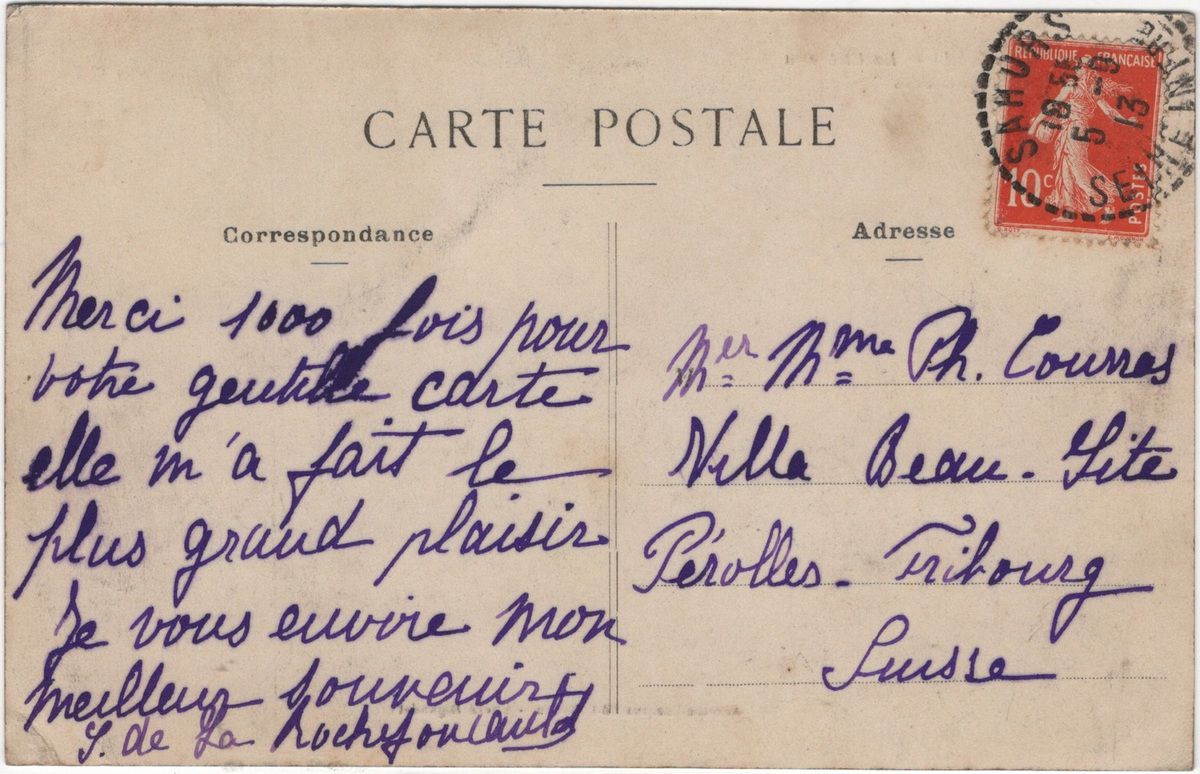 CARTE POSTALE
Correspondance
Merci 1000 fois pour
votre gentille carte
elle m'a fait le
plus grand plaisir
Je vous envoie mon
meilleur souvenir
S. de La Rochefoucauld
Adresse
Mme Ph. Courras
Villa Beau-Site
Pérolles - Fribourg
Suisse
RÉPUBLIQUE FRANÇAISE
10c
POSTES
SAHURS
18 55
5 - 9
13
SEINE INFRE